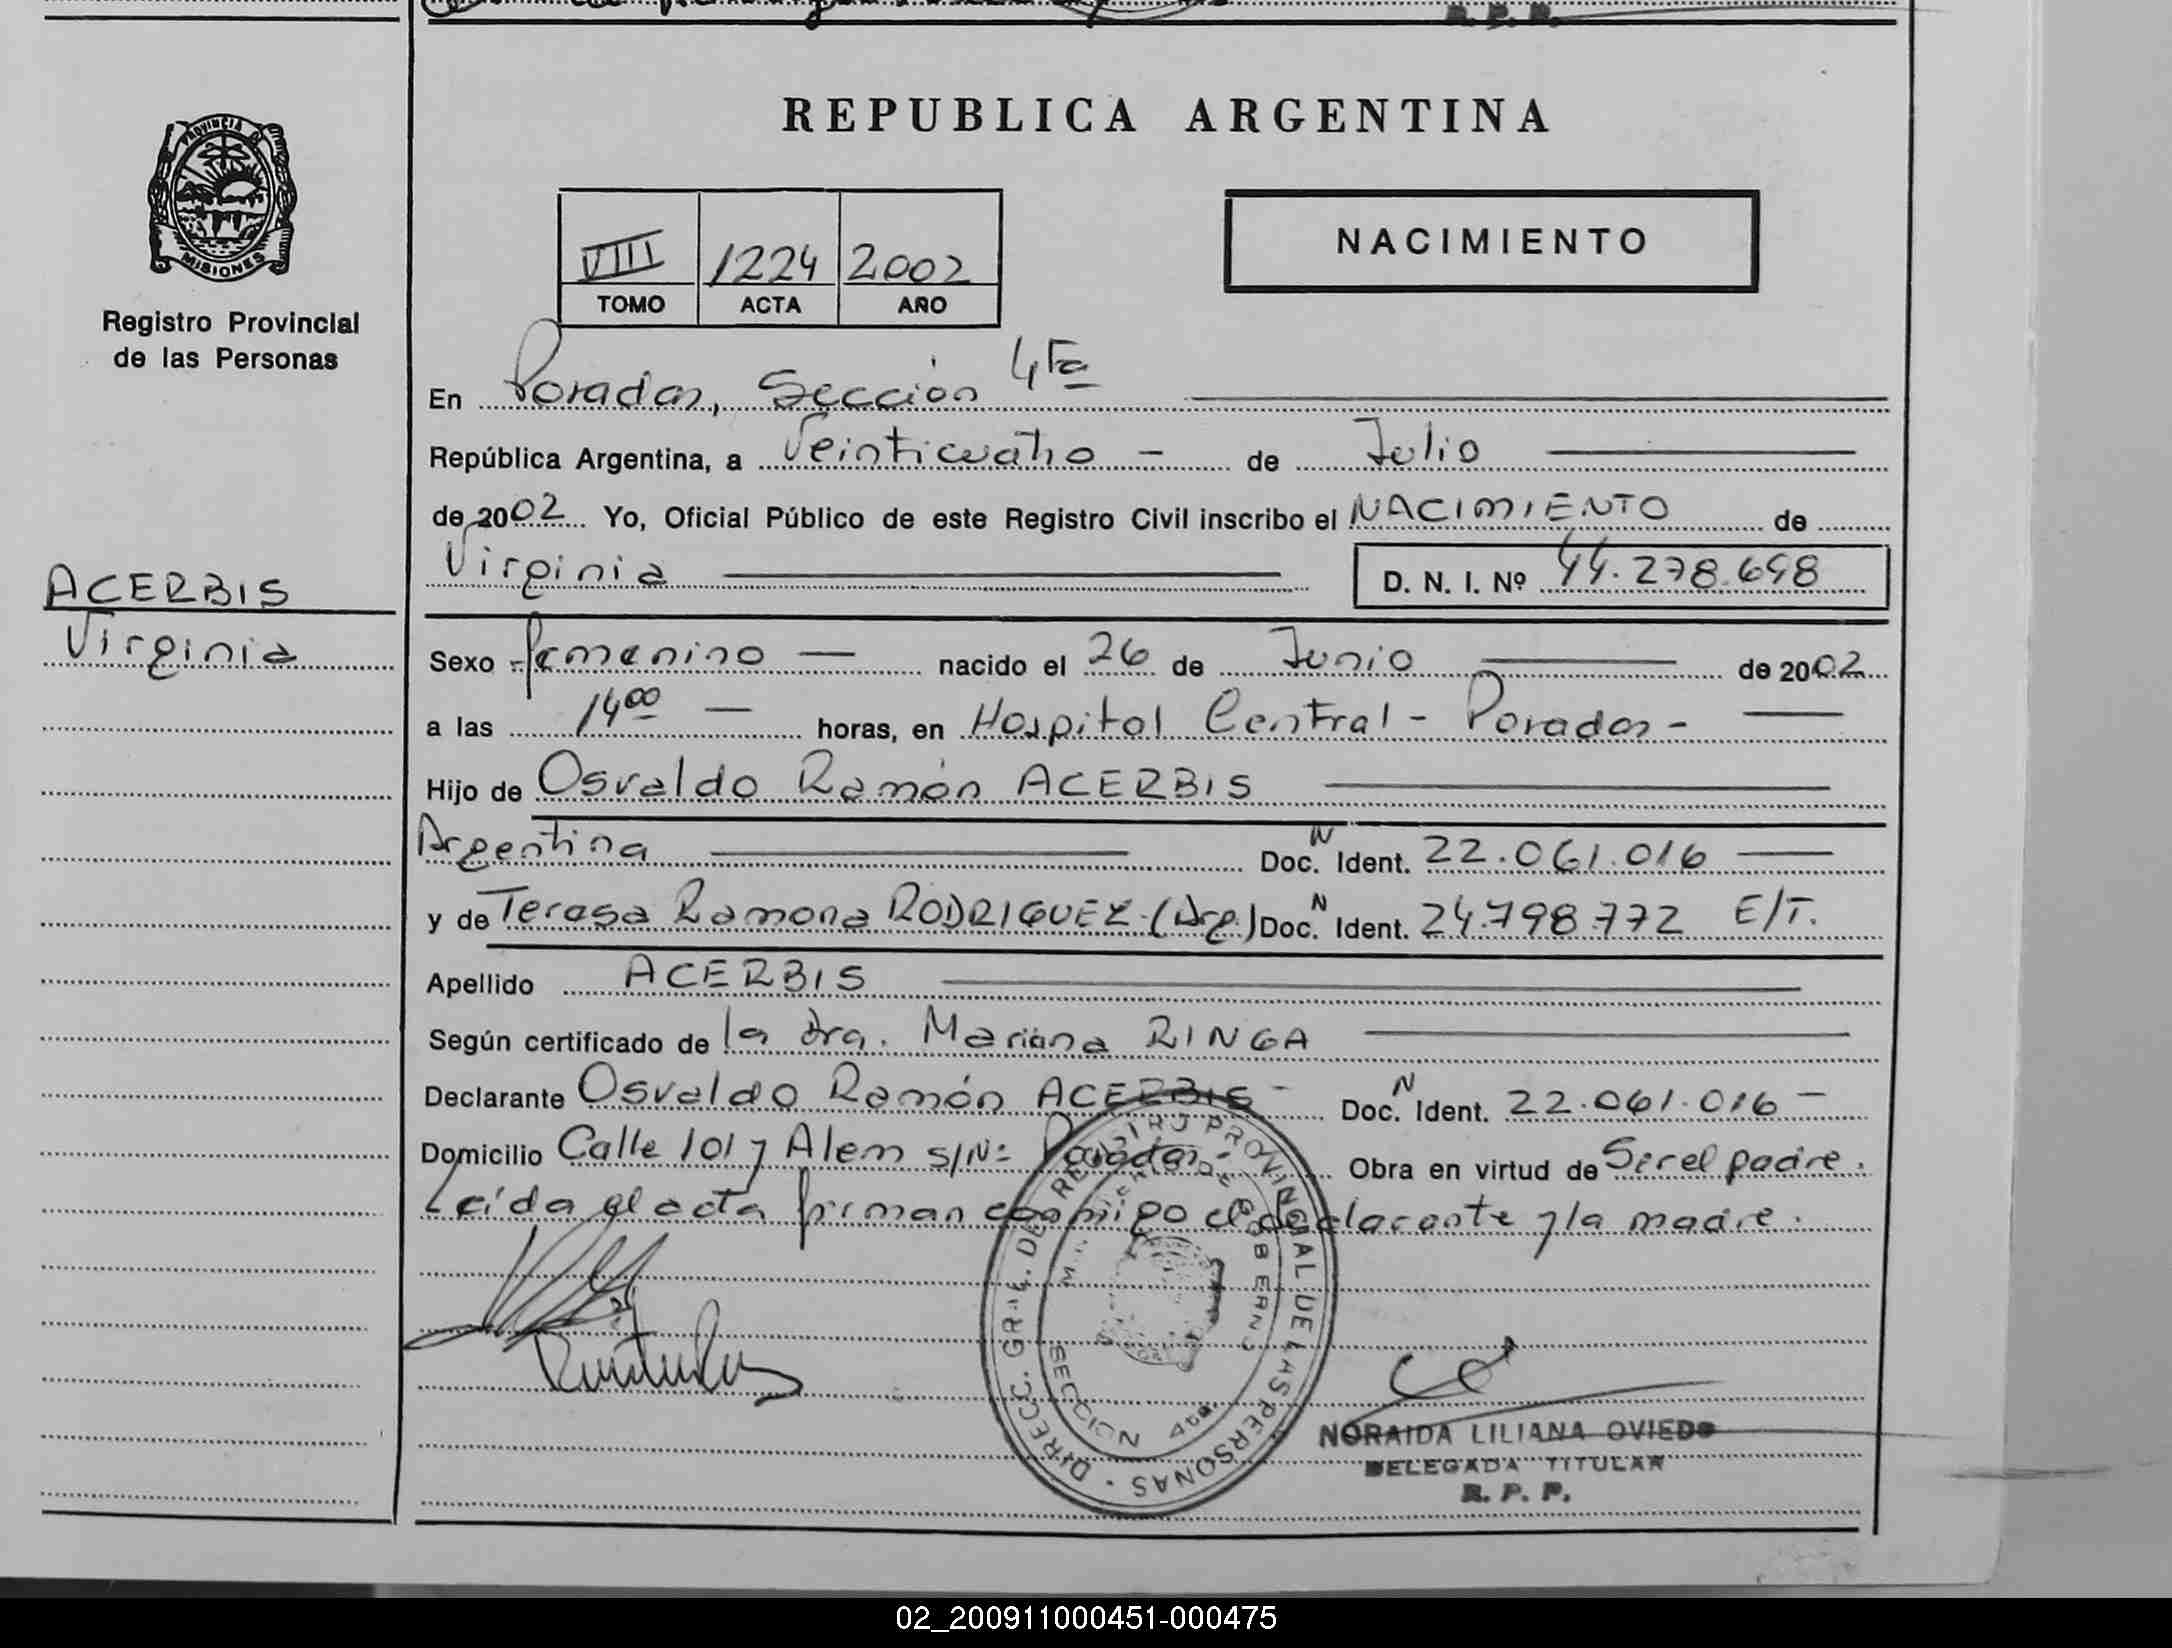 REPUBLICA ARGENTINA
PROVINCIA DE
MISIONES
Registro Provincial
de las Personas
ACERBIS
Virginia
VIII 1224 2002
TOMO ACTA AÑO
NACIMIENTO
En Posadas, Sección 4ta
República Argentina, a Veinticuatro - de Julio
de 2002 Yo, Oficial Público de este Registro Civil inscribo el NACIMIENTO de
Virginia D. N. I. Nº 44.278.698
Sexo femenino — nacido el 26 de Junio de 2002
a las 14 00 — horas, en Hospital Central - Posadas -
Hijo de Osvaldo Ramón ACERBIS
Argentina Doc. N Ident. 22.061.016
y de Teresa Ramona RODRIGUEZ (Arg.) Doc. N Ident. 24.798.772 E/T.
Apellido ACERBIS
Según certificado de la Dra. Mariana RINGA
Declarante Osvaldo Ramón ACERBIS - Doc. N Ident. 22.061.016 -
Domicilio Calle 101 y Alem s/Nº Posadas - Obra en virtud de Ser el padre.
Leída el acta firman conmigo el declarante y la madre.
DIRECC. GRAL. DEL REGISTRO PROVINCIAL DE LAS PERSONAS
MINISTERIO DE GOBIERNO
SECCION 4ta.
NORAIDA LILIANA OVIEDO
DELEGADA TITULAR
R. P. P.
02_200911000451-000475